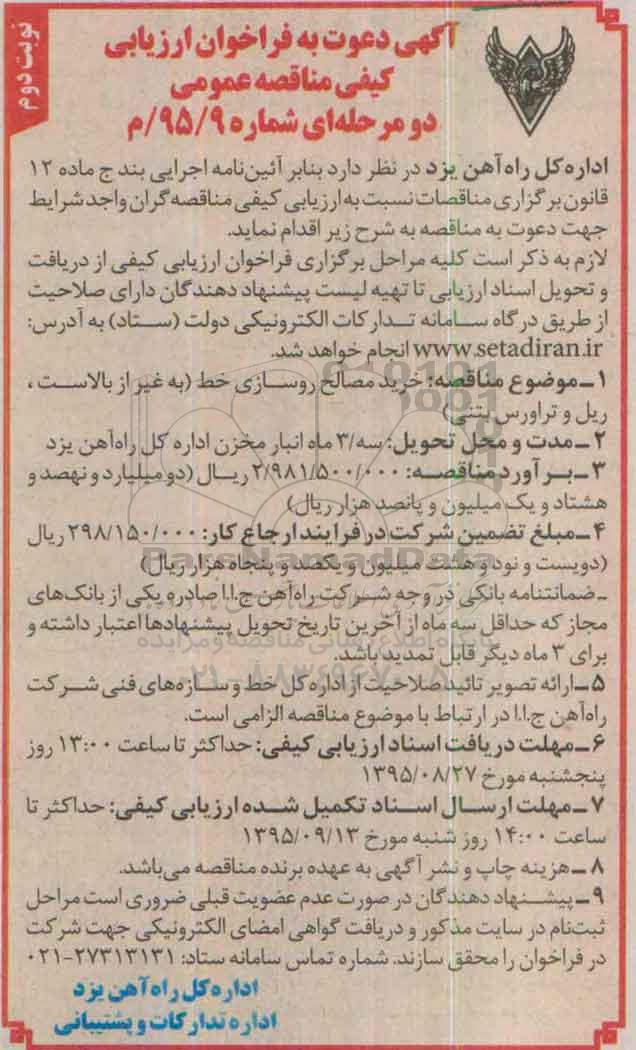 نوبت دوم
آگهی دعوت به فراخوان ارزیابی
کیفی مناقصه عمومی
دو مرحله‌ای شماره ۹۵/۹/م
اداره کل راه آهن یزد در نظر دارد بنابر آئین‌نامه اجرایی بند ج ماده ۱۲
قانون برگزاری مناقصات نسبت به ارزیابی کیفی مناقصه‌گران واجد شرایط
جهت دعوت به مناقصه به شرح زیر اقدام نماید.
لازم به ذکر است کلیه مراحل برگزاری فراخوان ارزیابی کیفی از دریافت
و تحویل اسناد ارزیابی تا تهیه لیست پیشنهاد دهندگان دارای صلاحیت
از طریق درگاه سامانه تدارکات الکترونیکی دولت (ستاد) به آدرس:
www.setadiran.ir انجام خواهد شد.
۱ـ موضوع مناقصه: خرید مصالح روسازی خط (به غیر از بالاست،
ریل و تراورس بتنی)
۲ ـ مدت و محل تحویل: سه/۳ ماه انبار مخزن اداره کل راه‌آهن یزد
۳ ـ برآورد مناقصه: ۲/۹۸۱/۵۰۰/۰۰۰ ریال (دو میلیارد و نهصد و
هشتاد و یک میلیون و پانصد هزار ریال)
۴ـ مبلغ تضمین شرکت در فرایند ارجاع کار: ۲۹۸/۱۵۰/۰۰۰ ریال
(دویست و نود و هشت میلیون و یکصد و پنجاه هزار ریال)
ـ ضمانتنامه بانکی در وجه شرکت راه‌آهن ج.ا.ا صادره یکی از بانک‌های
مجاز که حداقل سه ماه از آخرین تاریخ تحویل پیشنهادها اعتبار داشته و
برای ۳ ماه دیگر قابل تمدید باشد.
۵ ـ ارائه تصویر تائید صلاحیت از اداره کل خط و سازه‌های فنی شرکت
راه‌آهن ج.ا.ا در ارتباط با موضوع مناقصه الزامی است.
۶ ـ مهلت دریافت اسناد ارزیابی کیفی: حداکثر تا ساعت ۱۳:۰۰ روز
پنجشنبه مورخ ۱۳۹۵/۰۸/۲۷
۷ ـ مهلت ارسال اسناد تکمیل شده ارزیابی کیفی: حداکثر تا
ساعت ۱۴:۰۰ روز شنبه مورخ ۱۳۹۵/۰۹/۱۳
۸ ـ هزینه چاپ و نشر آگهی به عهده برنده مناقصه می‌باشد.
۹ ـ پیشنهاد دهندگان در صورت عدم عضویت قبلی ضروری است مراحل
ثبت‌نام در سایت مذکور و دریافت گواهی امضای الکترونیکی جهت شرکت
در فراخوان را محقق سازند. شماره تماس سامانه ستاد: ۲۷۳۱۳۱۳۱-۰۲۱
اداره کل راه آهن یزد
اداره تدارکات و پشتیبانی
ParsNamadData